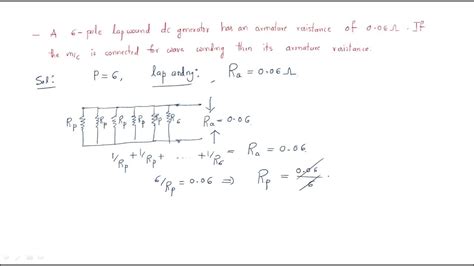 - A 6-pole lapwound dc generator has an armature raistance of 0.06Ω. If
the m/c is connected for wave winding then its armature raistance.
Sol: P=6, lap wndng: Ra = 0.06Ω
Rp Rp Rp Rp Rp Rp R6 Ra = 0.06
1/Rp + 1/Rp + ... + 1/R6 = Ra = 0.06
6/Rp = 0.06 ⇒ Rp = 0.06/6